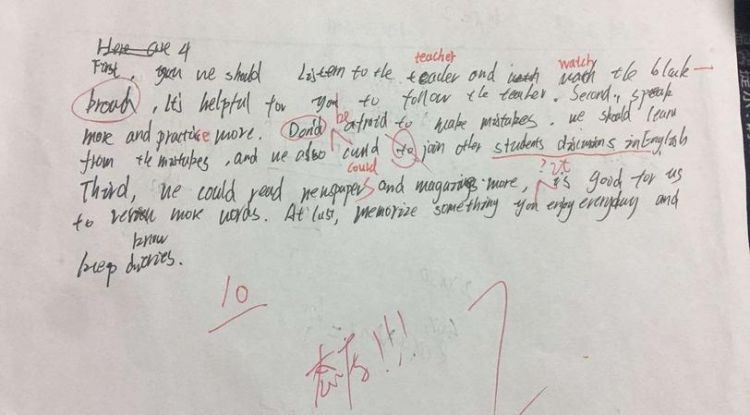 Here are 4
teacher watch
First, you we should Listen to the teacder and wath the black
broud, It's helpful for you to follow the teacher. Second, speak
be
more and practice more. Don'd afroid to make mistakes. We should learn
from the mistakes, and we also cund to join other students discussions in English
could ? it
Third, we could read newspapers and magazings more, is good for us
to review more words. At last, memorize something you enjoy everyday and
know
keep diaries.
10
!!!